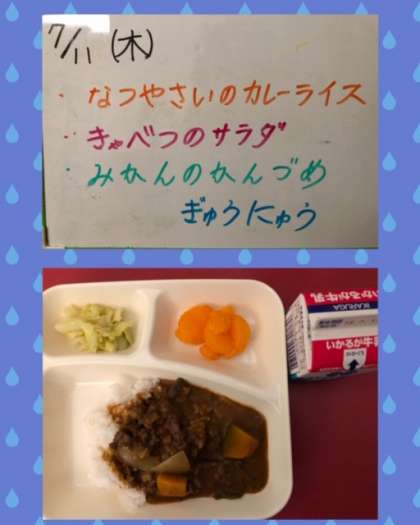 7/11 (木)
・なつやさいのカレーライス
・きゃべつのサラダ
・みかんのかんづめ
ぎゅうにゅう
いかるが牛乳
IKARUGA
牛がるかい